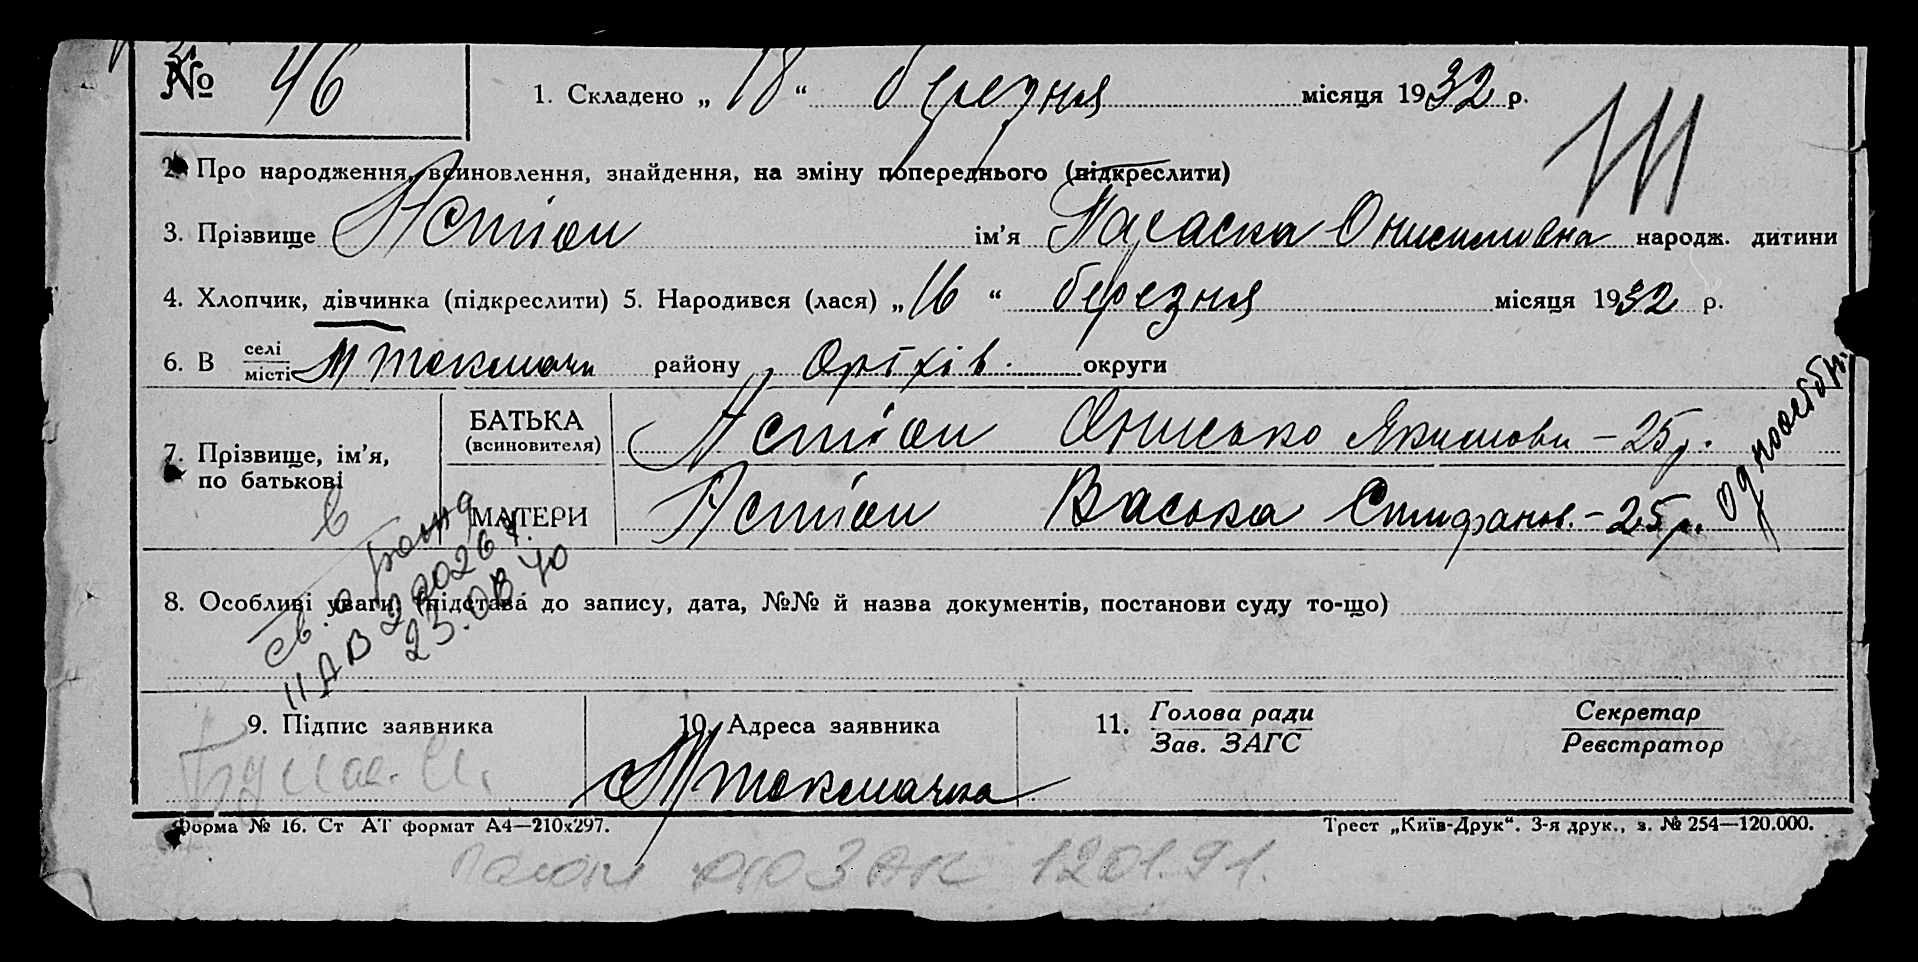 № 46
1. Складено „ 18 “ березня місяця 1932 р.
2. Про народження, всиновлення, знайдення, на зміну попереднього (підкреслити)
3. Прізвище Астіон ім’я Параска Онисимовна народж. дитини
4. Хлопчик, дівчинка (підкреслити) 5. Народився (лася) „ 16 “ березня місяця 1932 р.
6. В селі
місті М Токмачи району Оріхів округи
7. Прізвище, ім’я, по батькові
БАТЬКА
(всиновителя)
Астіон Онисько Якимови – 25 р.
МАТЕРИ
Астіон Васька Стифанов. – 25 р.
одноособн.
8. Особливі уваги (підстава до запису, дата, №№ й назва документів, постанови суду то-що)
св. о
23.08 40
9. Підпис заявника
10. Адреса заявника
М Токмачка
11. Голова ради
Зав. ЗАГС
Секретар
Реєстратор
Форма № 16. Ст АТ формат А4—210х297.
Трест „Київ-Друк“. З-я друк., з. № 254—120.000.
ЗАК 1201.91.